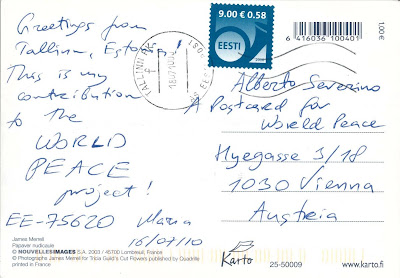 Greetings from
Tallinn, Estonia!
This is my
contribution
to the
WORLD
PEACE
project!
EE-75620 Maria
16/07/10
James Merrell
Papaver nudicaule
© NOUVELLESIMAGES S.A. 2003 / 45700 Lombreuil, France
© Photographs James Merrell for Tricia Guild's Cut Flowers published by Quadrille
printed in France
TALLINN
9.00 € 0.58
EESTI
6 416036 100401
1,00€
Alberto Severino
A Postcard for
World Peace
Hyegasse 3/18
1030 Vienna
Austria
Karto
25-50009
www.karto.fi